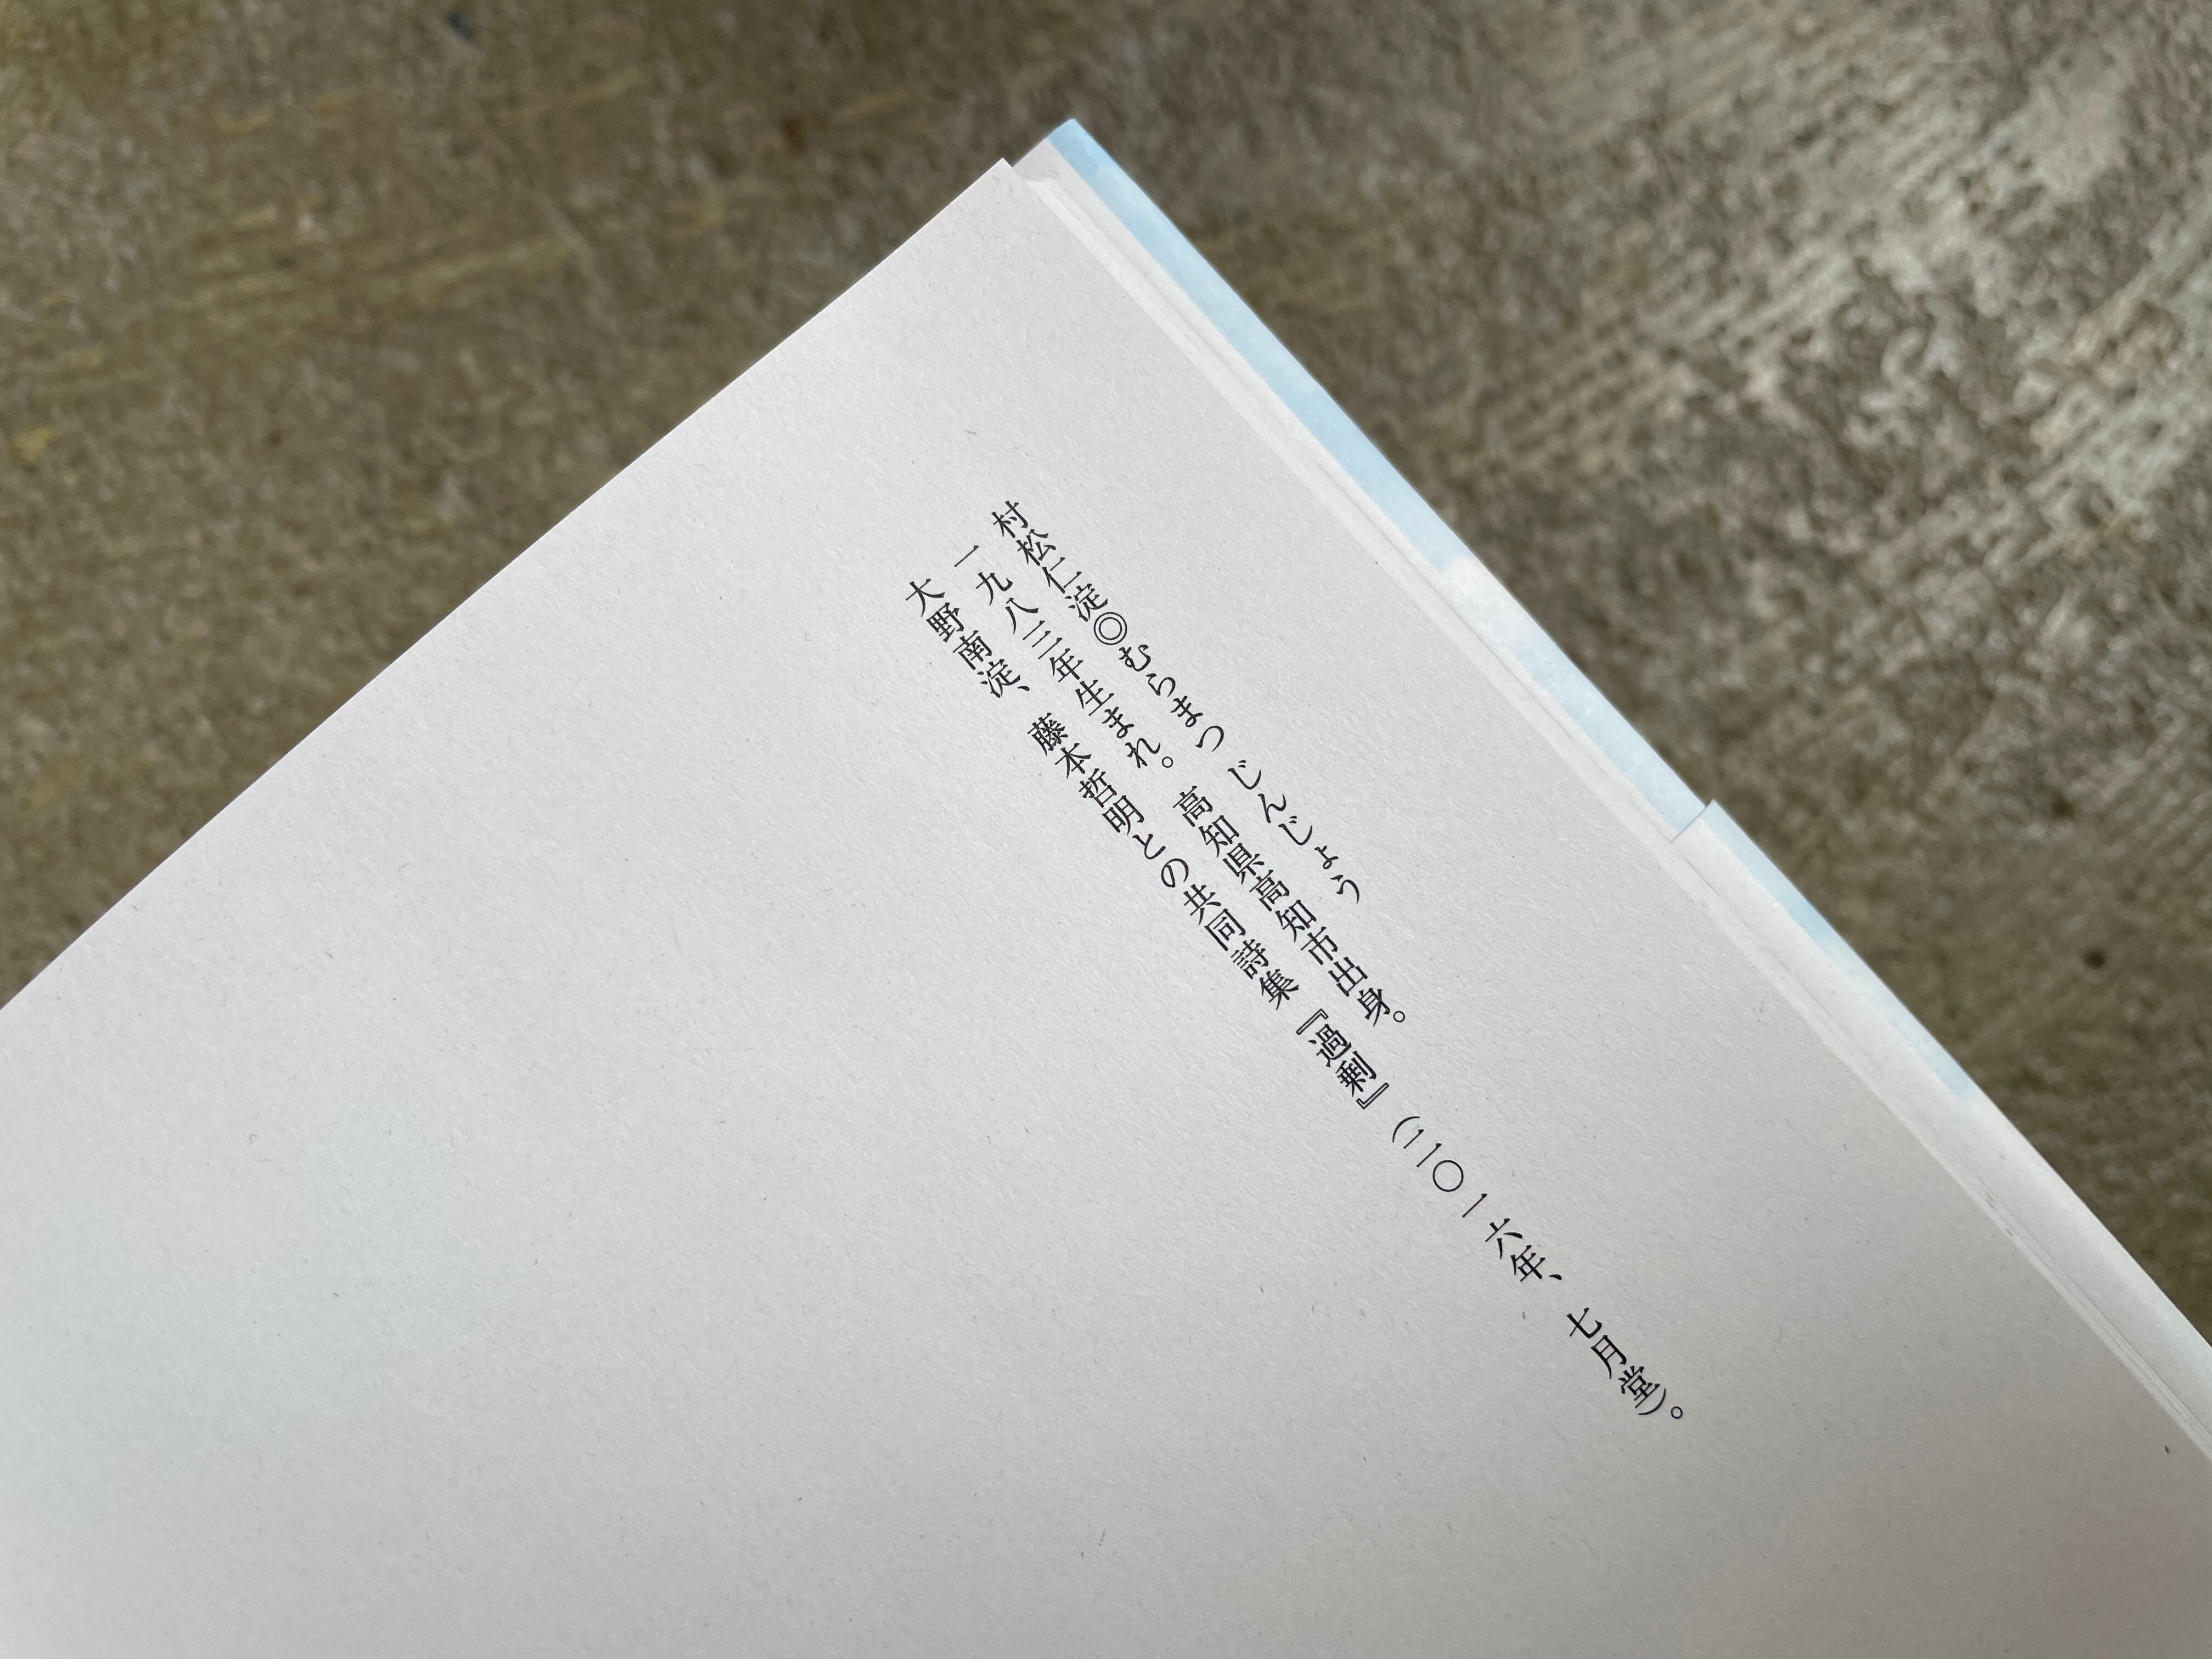 村松仁淀◎むらまつ じんじょう
一九八三年生まれ。高知県高知市出身。
大野南淀、藤本哲明との共同詩集『過剰』（二〇一六年、七月堂）。